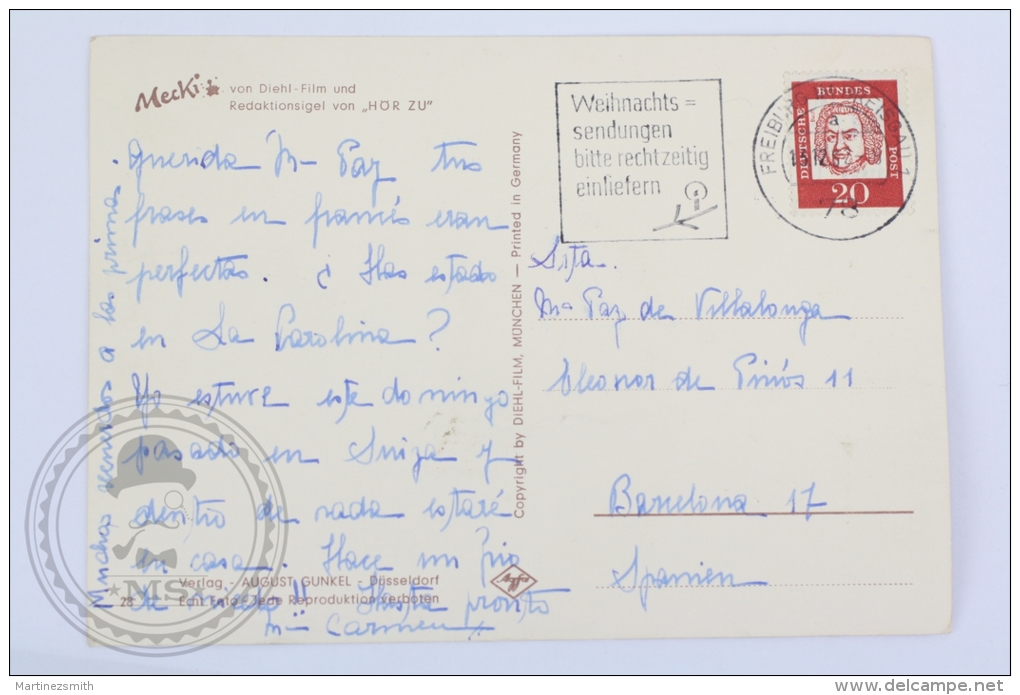 Mecki von Diehl-Film und
Redaktionsigel von „HÖR ZU"
Querida Mª Paz tus
frases en francés eran
perfectas. ¿Has estado
en La Carolina?
Yo estuve este domingo
pasado en Suiza y
dentro de nada estaré
en casa. Hace un frio
de !! Hasta pronto
Mª Carmen
Muchos recuerdos a las primas.
Verlag - AUGUST GUNKEL - Düsseldorf
28 Echt Foto - Jede Reproduktion verboten
Copyright by DIEHL-FILM, MÜNCHEN — Printed in Germany
Agfa
Weihnachts=
sendungen
bitte rechtzeitig
einliefern
FREIBURG BREISGAU 1
a
78
DEUTSCHE BUNDES POST
20
Srta.
Mª Paz de Villalonga
Eleonor de Pinós 11
Barcelona 17
Spanien
MS
Martinezsmith
delcampe.net